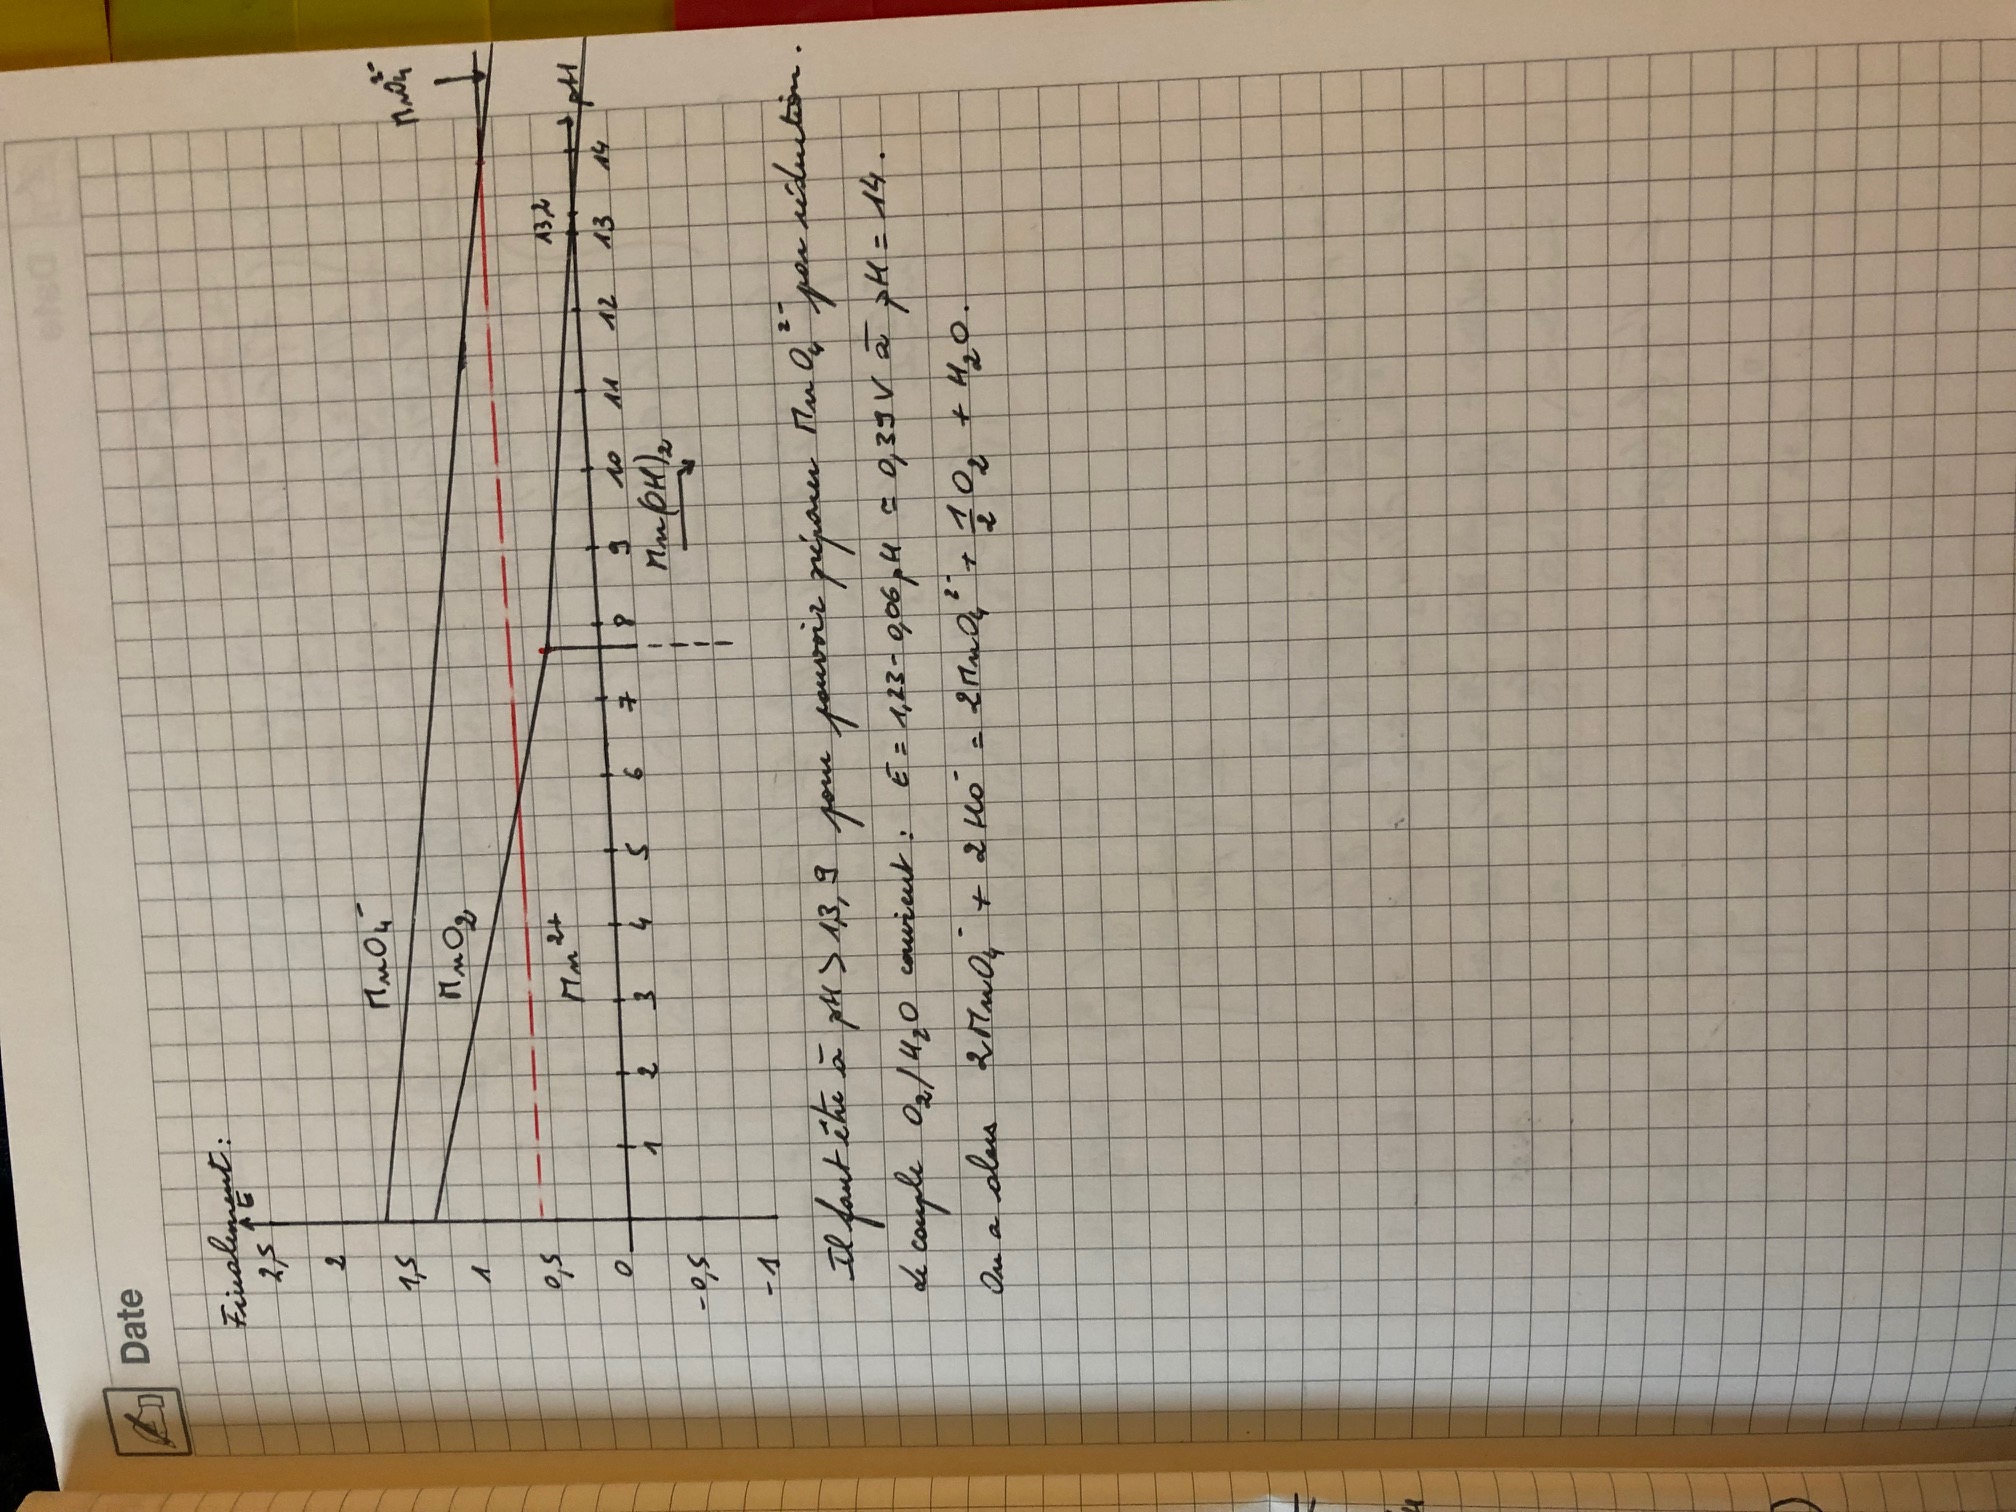 Date
Finalement :
E
2,5
2
MnO₄⁻
1,5
MnO₄²⁻
MnO₂
1
0,5
13,2
Mn²⁺
pH
0
1 2 3 4 5 6 7 8 9 10 11 12 13 14
Mn(OH)₂
-0,5
-1
Il faut être à pH > 13,9 pour pouvoir préparer MnO₄²⁻ par réduction.
Le couple O₂/H₂O convient : E = 1,23 - 0,06 pH ≃ 0,39 V à pH = 14.
On a alors 2MnO₄⁻ + 2HO⁻ = 2MnO₄²⁻ + 1/2 O₂ + H₂O.